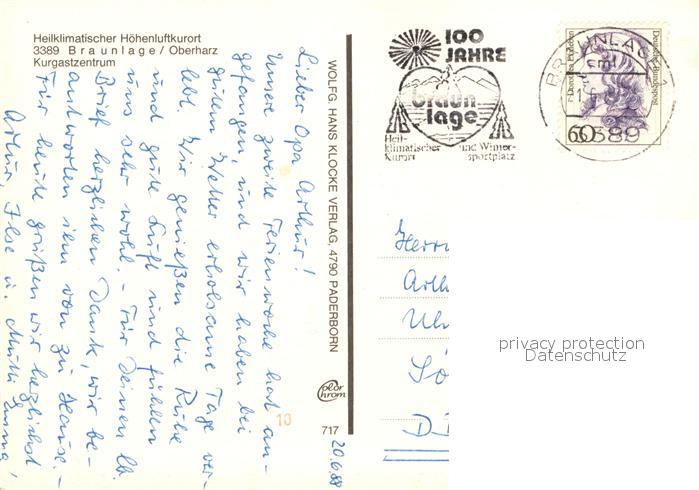 Heilklimatischer Höhenluftkurort
3389 Braunlage / Oberharz
Kurgastzentrum
Lieber Opa Arthur!
Unsere zweite Ferienwoche hat an-
gefangen, und wir haben bei
gutem Wetter erholsame Tage ver-
lebt. Wir genießen die Ruhe
und gute Luft und fühlen
uns sehr wohl. - Für Deinen lb.
Brief herzlichen Dank, wir be-
antworten ihn von zu Hause. -
Für heute grüßen wir herzlichst
Artur, Ilse u. Mutti Emma!
WOLFG. HANS KLOCKE VERLAG, 4790 PADERBORN
color
chrom
10
717
20.6.88
100
JAHRE
braun
lage
Heil-
klimatischer und Winter-
Kurort sportplatz
BRAUNLAGE 1
3389
Deutsche Bundespost
60
Herrn
Arth
Ulm
Sö
D
privacy protection
Datenschutz